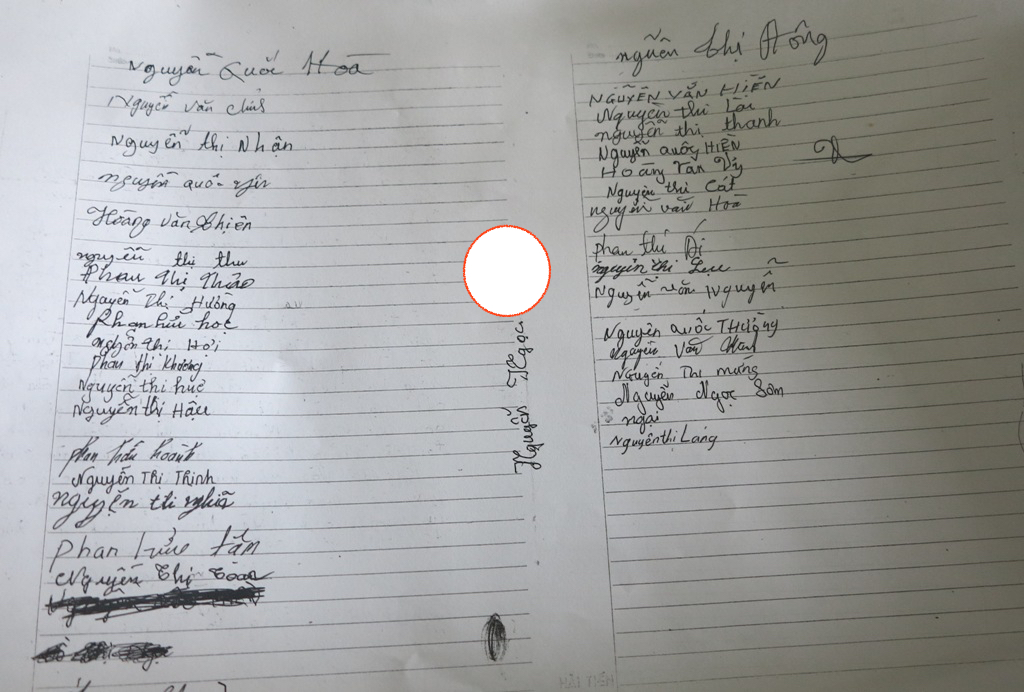 Nguyễn Quốc Hoà
Nguyễn văn
Nguyễn thị Nhận
nguyễn quốc
Hoàng văn Chiện
nguyễn thị thu
Phan Thị Thảo
Nguyễn Thị Hường
Phan hữu học
nguyễn thị Hơi
phan thị Khương
Nguyễn thị huê
Nguyễn thị Hậu
phan hữu hoành
Nguyễn Thị Thịnh
nguyễn thi nghiã
phan hữu tâm
Nguyễn Thị Toàn
Nguyễn Ngọc
nguễn thị Hồng
NGUYỄN VĂN HIỀN
Nguyễn thi Lài
nguyễn thị thanh
Nguyễn quốc HIỀN
Hoàng Văn Vỹ
Nguyễn thi Cát
nguyễn văn Hoà
phan thí Dị
nguyễn thi Lưu
Nguyễn văn Nguyễn
Nguyễn quốc THưởng
nguyễn Văn
Nguyễn Thi mừng
Nguyễn Ngọc Sơn
ngại
Nguyễn thị Lang